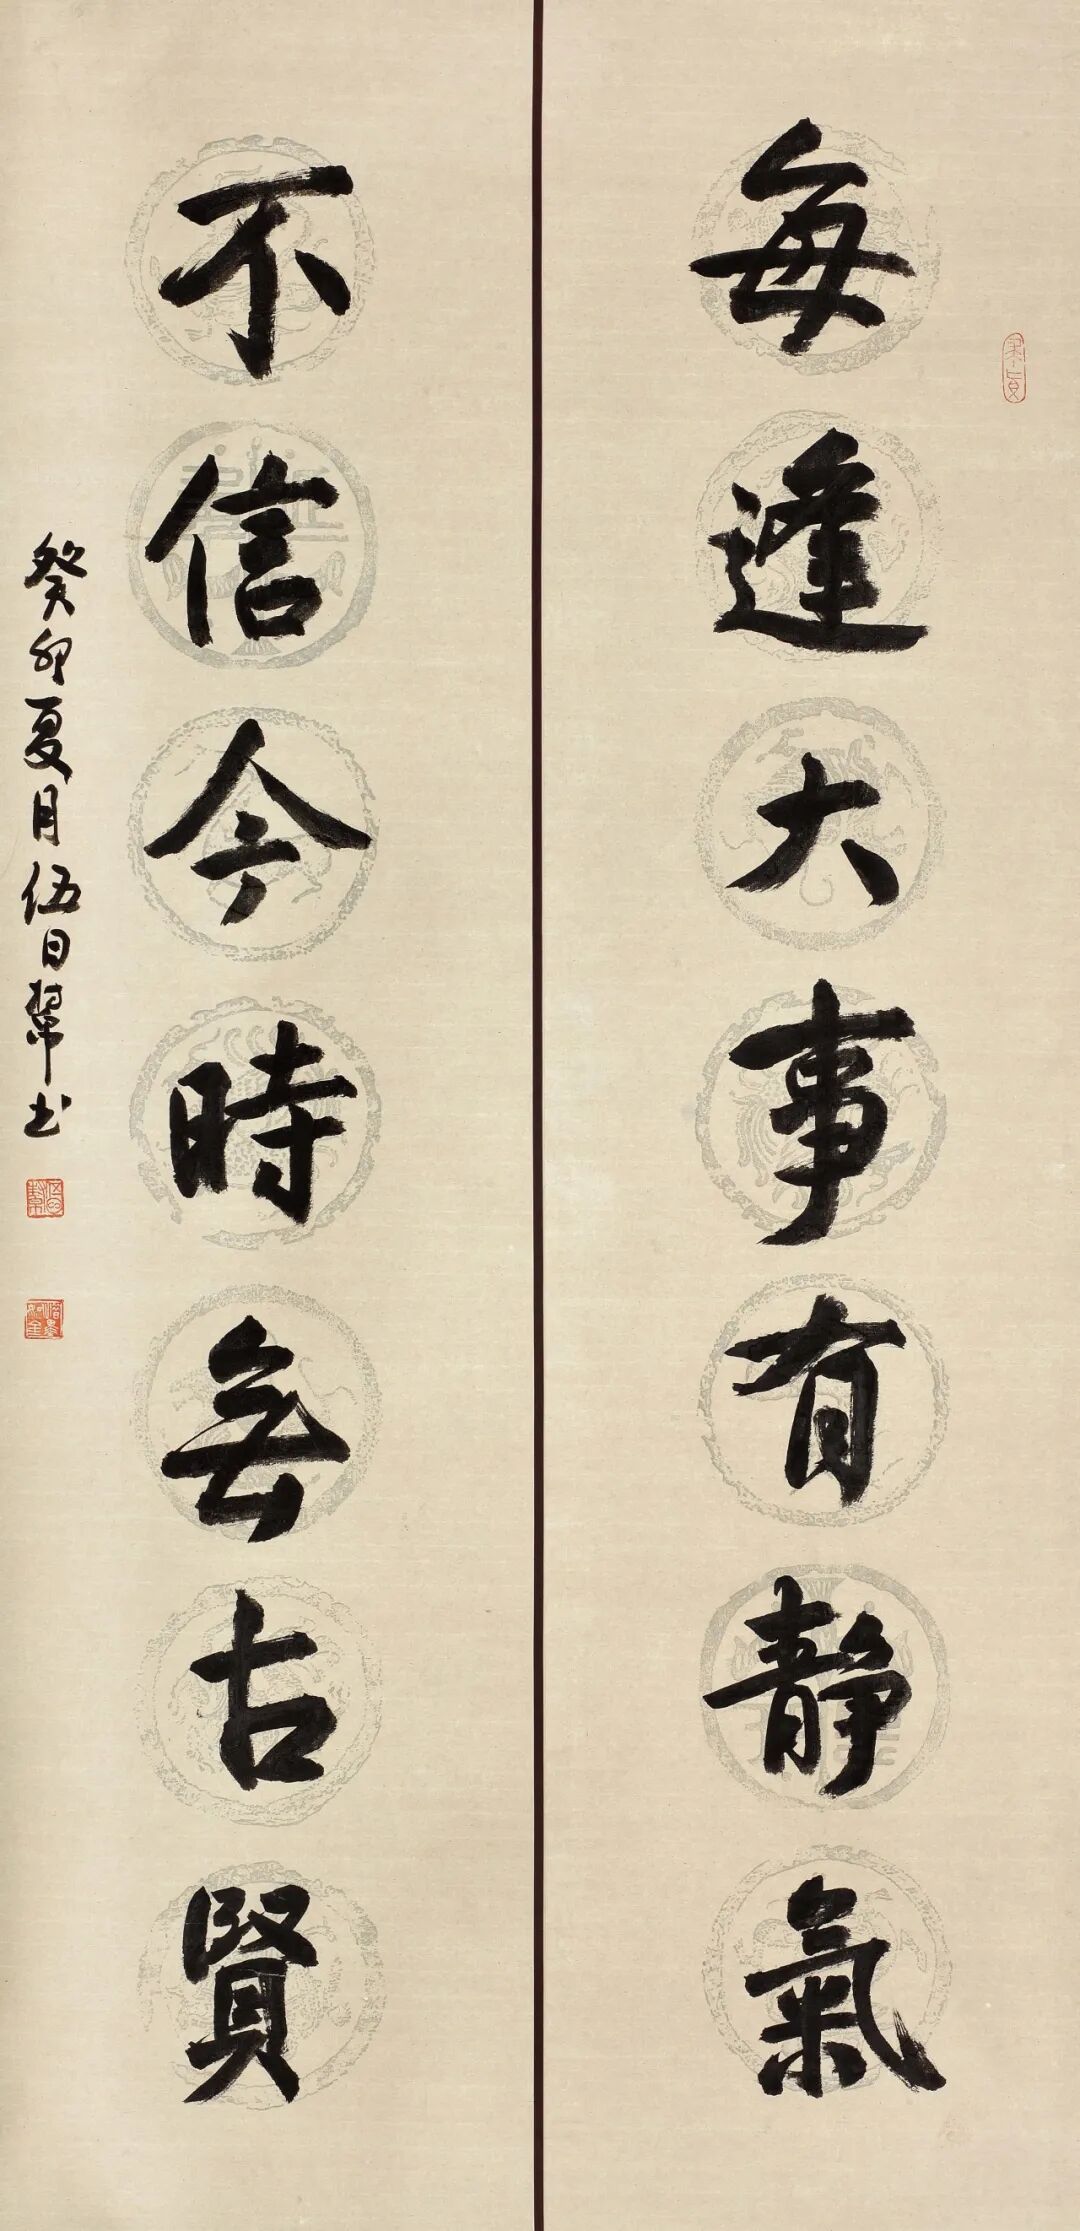 每逢大事有静氣
不信今時無古賢
癸卯夏月伍日幫书